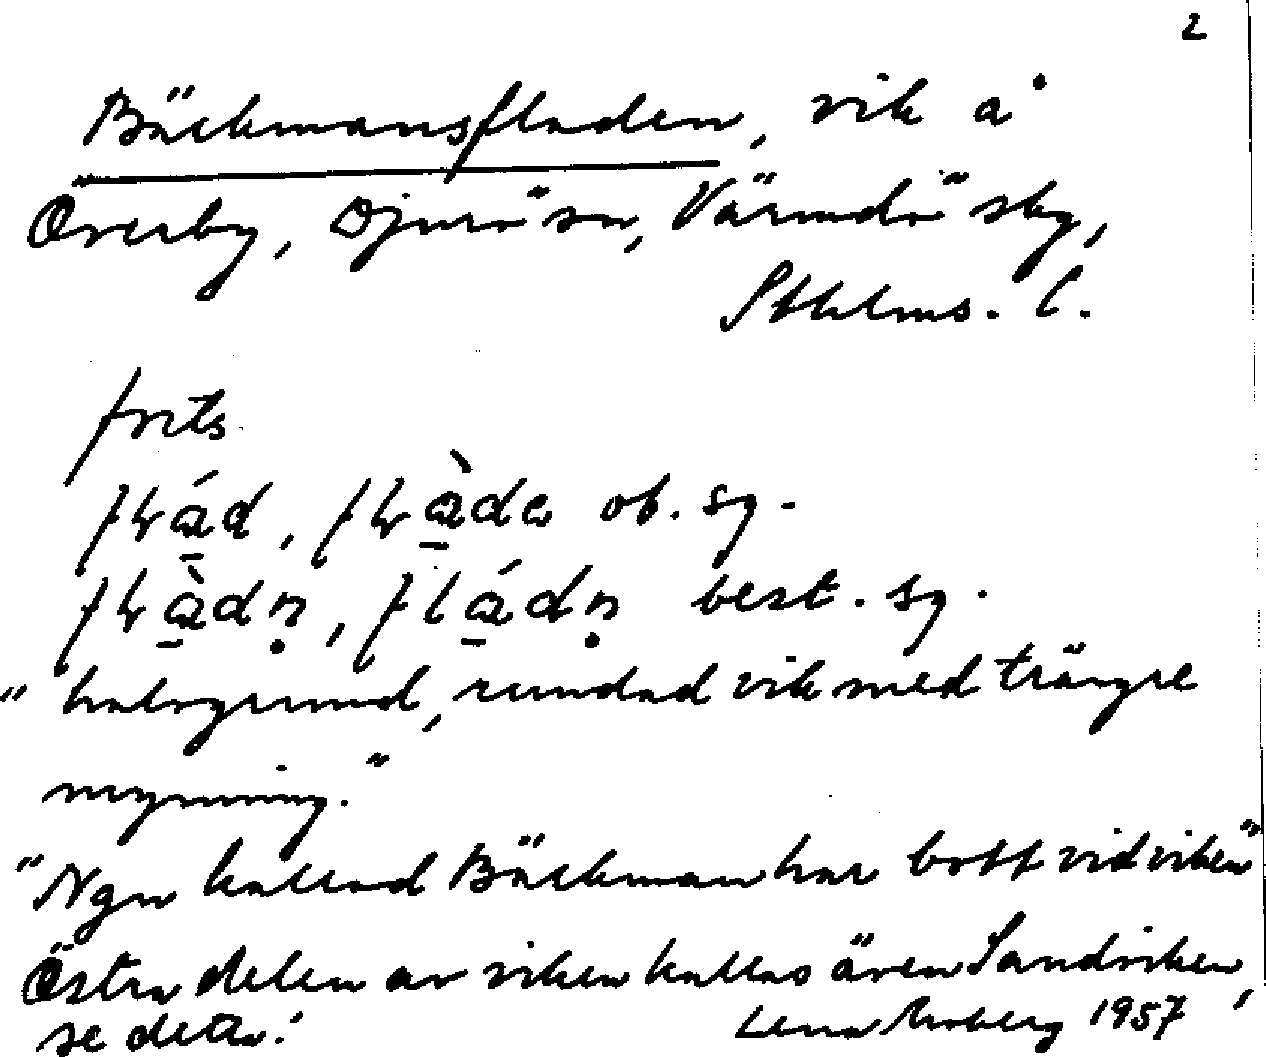 2
Bäckmansfladen, vik å
Överby, Djurö sn, Värmdö skg,
Sthlms. l.
forts.
ob. sg.
best. sg.
"halvgrund, rundad vik med trängre
mynning."
"Ngn kallad Bäckman har bott vid viken"
Östra delen av viken kallas även Sandviken,
se detta! Lena Moberg 1957